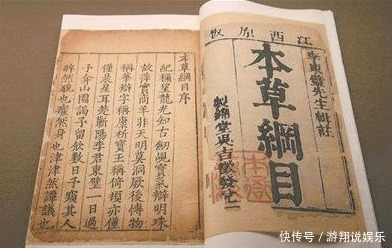 江西原板
李東璧先生輯註
本草綱目
製錦堂吳吉徵發兌
本草綱目序
紀稱望龍光知古劍覘寶氣辯明珠
故萍實商羊非天明莫洞厥後博物
稱華辯字稱康析寶玉稱倚頓亦僅
僅晨星耳楚蘄陽李君東璧一日過
予弇山園謁予留飲數日予窺其人
睟然貌也癯然身也津津然譚議也
快传号 / 游翔说娱乐